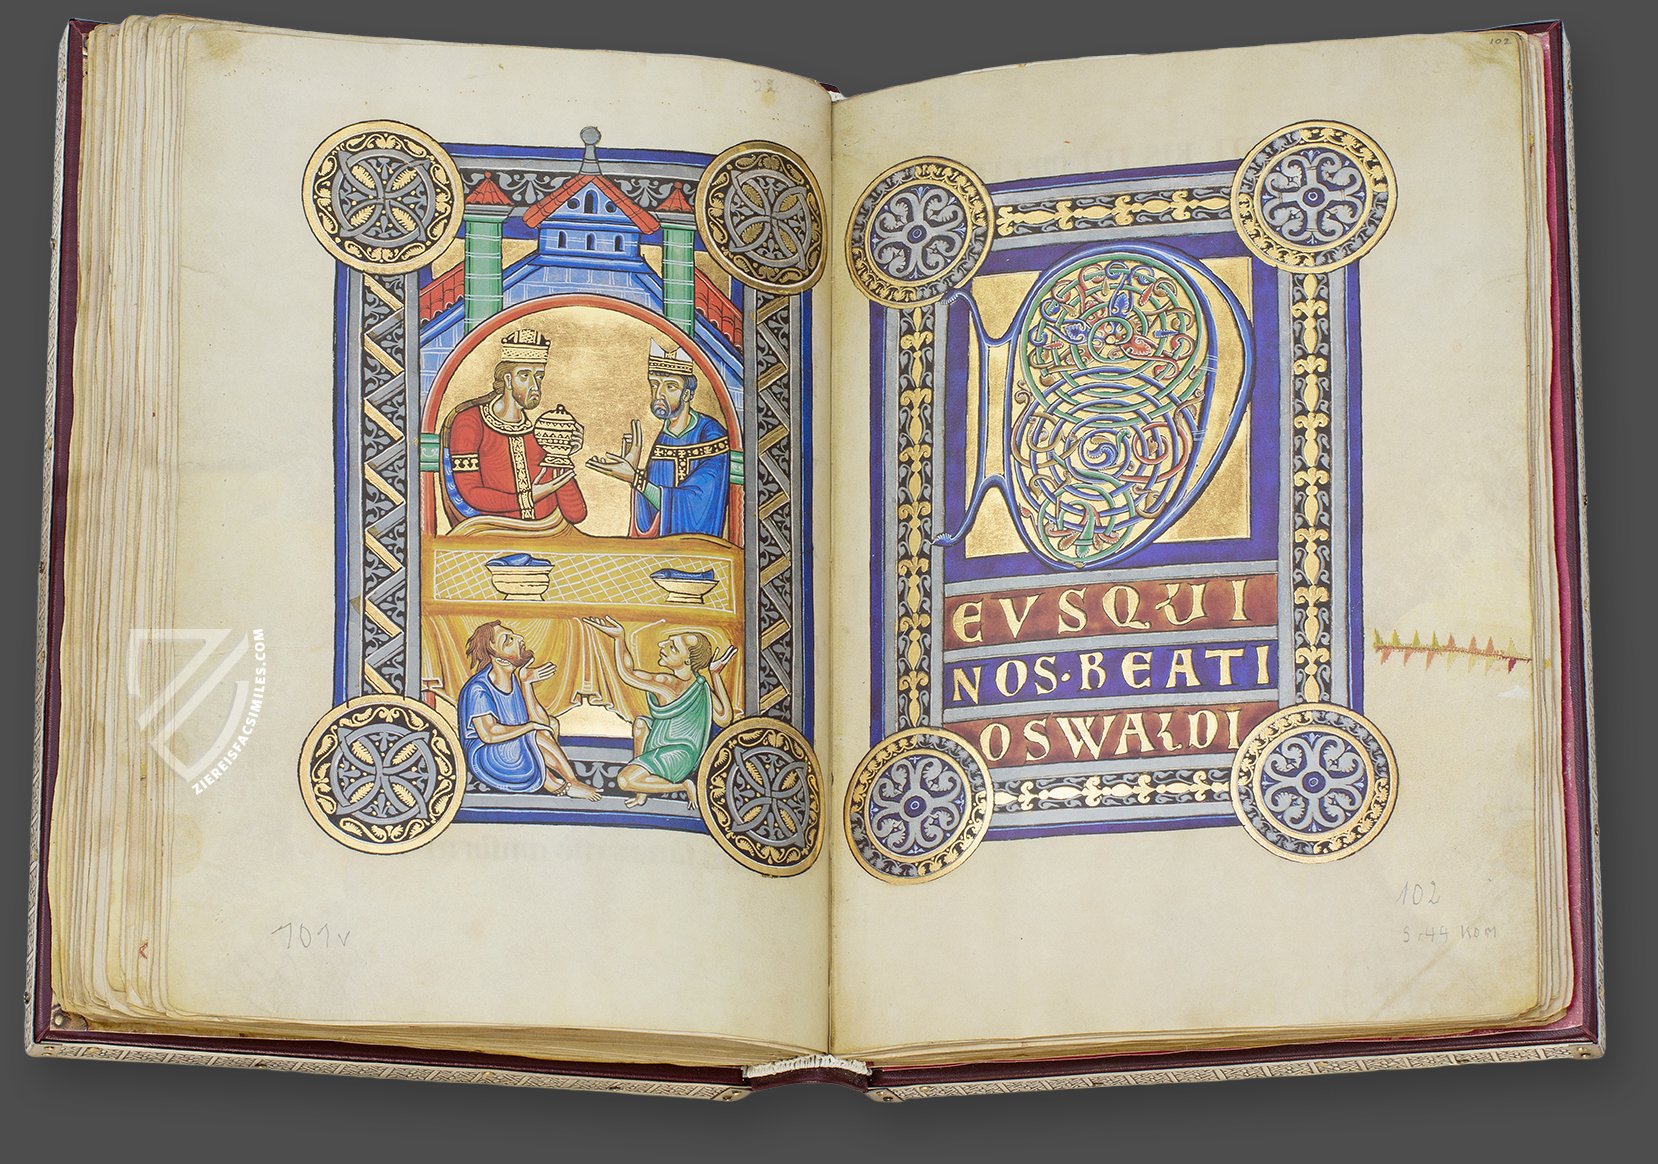 101v
ZIEREISFACSIMILES.COM
102
EVSQUI
NOS·BEATI
OSWALDI
102